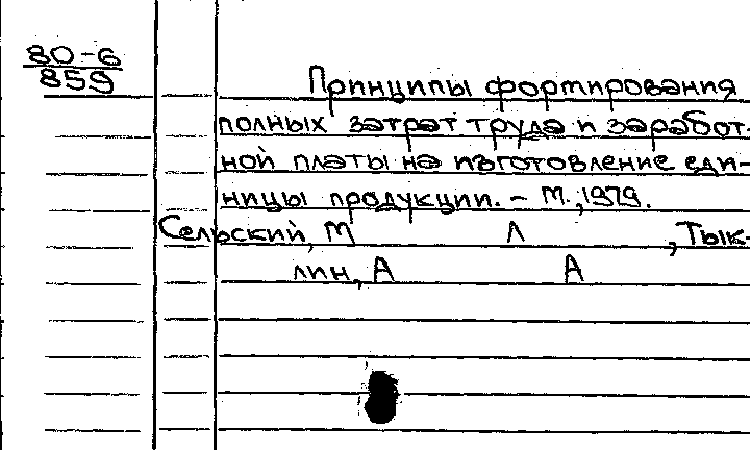 80-6
859
Принципы формирования
полных затрат труда и заработ-
ной платы на изготовление еди-
ницы продукции. – М., 1979.
Сельский, М Л , Тык-
лин, А А